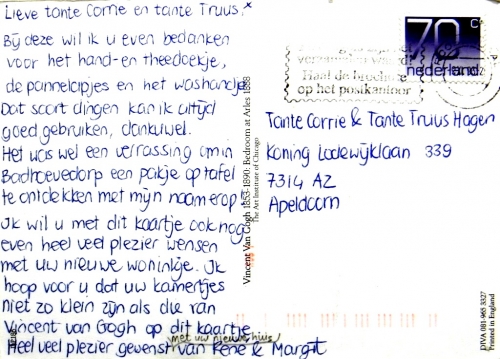 Lieve tante Corrie en tante Truus,
Bij deze wil ik u even bedanken
voor het hand- en theedoekje,
de pannelapjes en het washandje.
Dat soort dingen kan ik altijd
goed gebruiken, dankuwel.
Het was wel een verrassing om in
Badhoevedorp een pakje op tafel
te ontdekken met mijn naam erop!
Ik wil u met dit kaartje ook nog
even heel veel plezier wensen
met uw nieuwe woninkje. Ik
hoop voor u dat uw kamertjes
niet zo klein zijn als die van
Vincent van Gogh op dit kaartje
met uw nieuwe huis,
Heel veel plezier gewenst van René & Margit
Vincent Van Gogh 1853-1890: Bedroom at Arles 1888
The Art Institute of Chicago
70 c
nederland
Haal de brochure
op het postkantoor
Tante Corrie & Tante Truus Hagen
Koning Lodewijklaan 339
7314 AZ
Apeldoorn
DIVA 081-965 3327
Printed in England